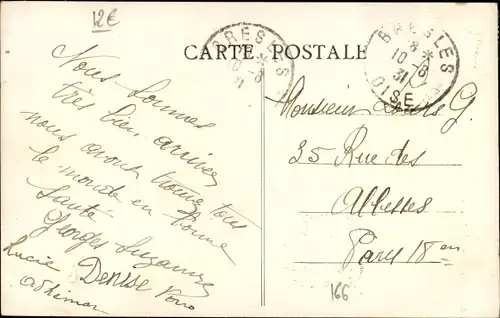 12€
CARTE POSTALE
BRESLES
10-8
31
BRESLES * OISE
8
10-8
31
Nous sommes
très bien arrivés
nous avons trouvé tous
le monde en bonne
santé
Georges Suzanne
Lucie Denise
Monsieur G.
35 Rue des
Abbesses
Paris 18 em
166